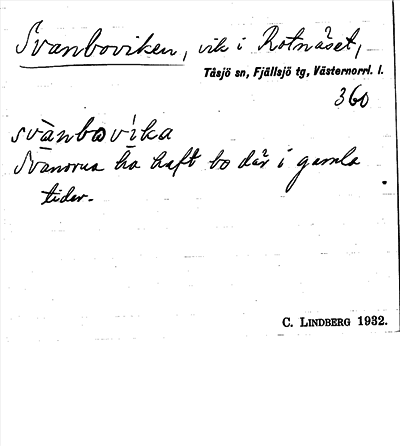 Svanboviken, vik i Rotnäset,
Tåsjö sn, Fjällsjö tg, Västernorrl. l.
360
svànbovìka
Svanorna ha haft bo där i gamla
tider.
C. LINDBERG 1932.